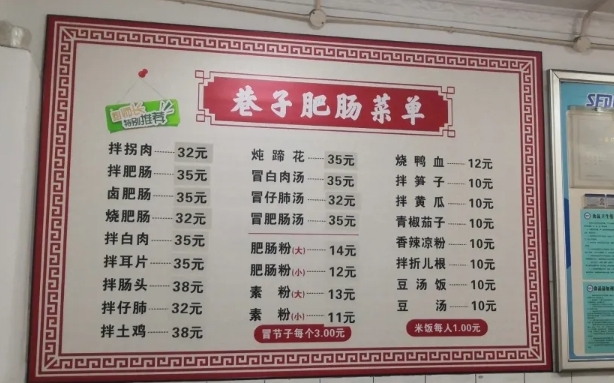 巷子肥肠菜单
特别推荐
拌拐肉 32元
拌肥肠 35元
卤肥肠 35元
烧肥肠 32元
拌白肉 35元
拌耳片 35元
拌肠头 38元
拌仔肺 32元
拌土鸡 38元
炖蹄花 35元
冒白肉汤 35元
冒仔肺汤 32元
冒肥肠汤 35元
肥肠粉(大) 14元
肥肠粉(小) 12元
素粉(大) 13元
素粉(小) 11元
冒节子每个3.00元
烧鸭血 12元
拌笋子 10元
拌黄瓜 10元
青椒茄子 10元
香辣凉粉 10元
拌折儿根 10元
豆汤饭 10元
豆汤 10元
米饭每人1.00元